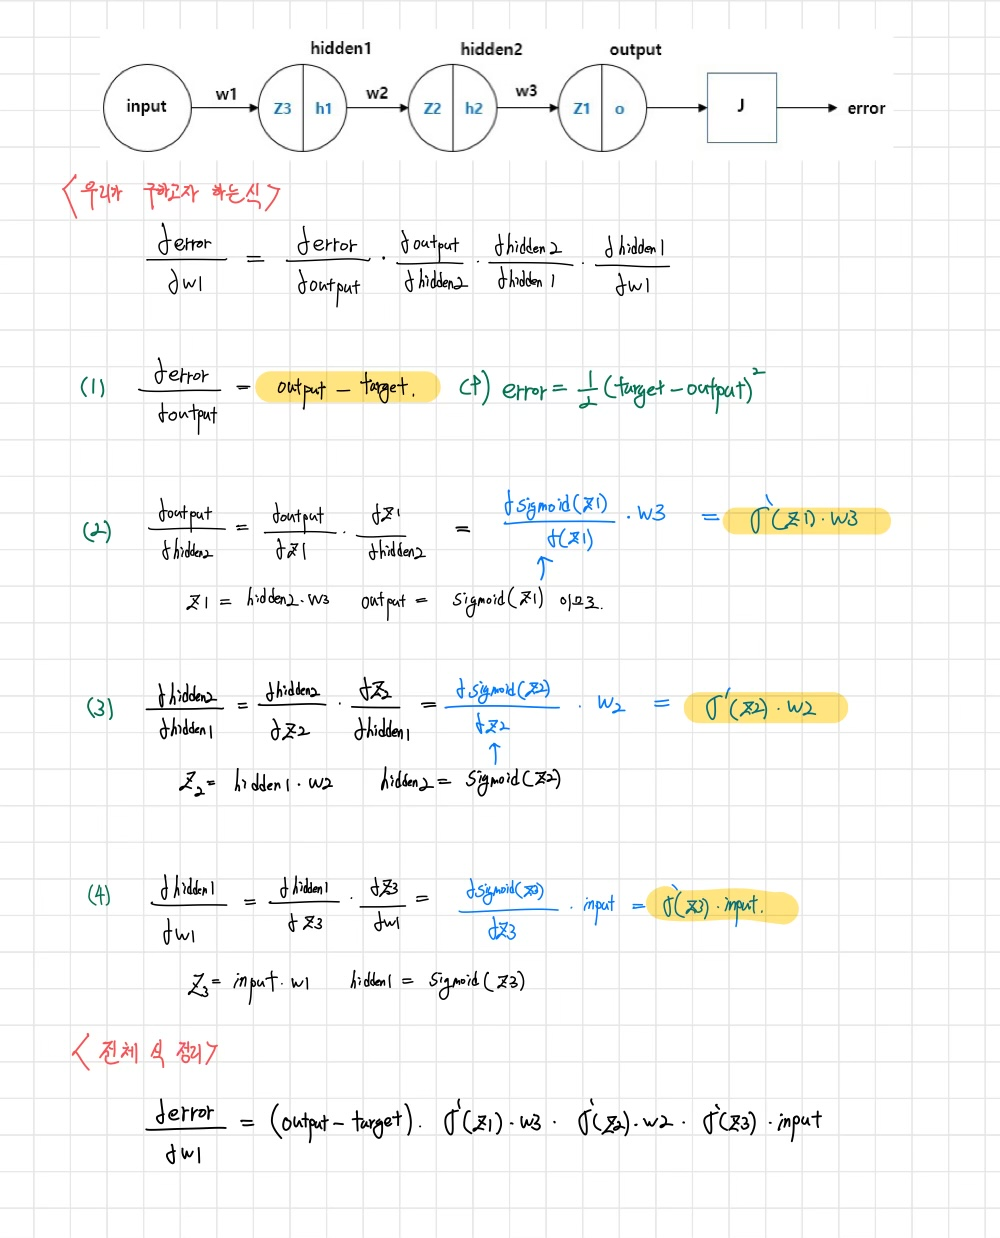 hidden1 hidden2 output
input w1 Z3 h1 w2 Z2 h2 w3 Z1 o J error
<우리가 구하고자 하는 식>
∂error/∂w1 = ∂error/∂output · ∂output/∂hidden2 · ∂hidden2/∂hidden1 · ∂hidden1/∂w1
(1) ∂error/∂output = output - target. error = 1/2 (target - output)²
(2) ∂output/∂hidden2 = ∂output/∂z1 · ∂z1/∂hidden2 = ∂sigmoid(z1)/∂(z1) · w3 = σ'(z1) · w3
z1 = hidden2 · w3 output = sigmoid(z1) 이므로.
(3) ∂hidden2/∂hidden1 = ∂hidden2/∂z2 · ∂z2/∂hidden1 = ∂sigmoid(z2)/∂z2 · w2 = σ'(z2) · w2
z2 = hidden1 · w2 hidden2 = sigmoid(z2)
(4) ∂hidden1/∂w1 = ∂hidden1/∂z3 · ∂z3/∂w1 = ∂sigmoid(z3)/∂z3 · input = σ'(z3) · input.
z3 = input · w1 hidden1 = sigmoid(z3)
<전체 식 정리>
∂error/∂w1 = (output - target) · σ'(z1) · w3 · σ'(z2) · w2 · σ'(z3) · input